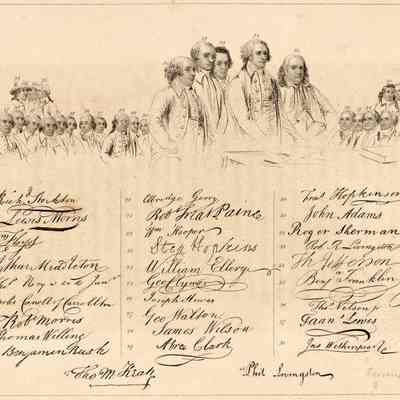 Richd Stockton
Lewis Morris
Wm Floyd
Arthur Middleton
Charles Carroll of Carrollton
Robt Morris
Thomas Willing
Benjamin Rush
Elbridge Gerry
Robt Treat Paine
Wm Hooper
Step Hopkins
William Ellery
Geo Clymer
Joseph Hewes
Geo Walton
James Wilson
Abra Clark
Fras Hopkinson
John Adams
Roger Sherman
Rob R Livingston
Th Jefferson
Benj Franklin
Ths Nelson jr
Frans Lewis
Jno Witherspoon
Tho M Kean
Phil Livingston